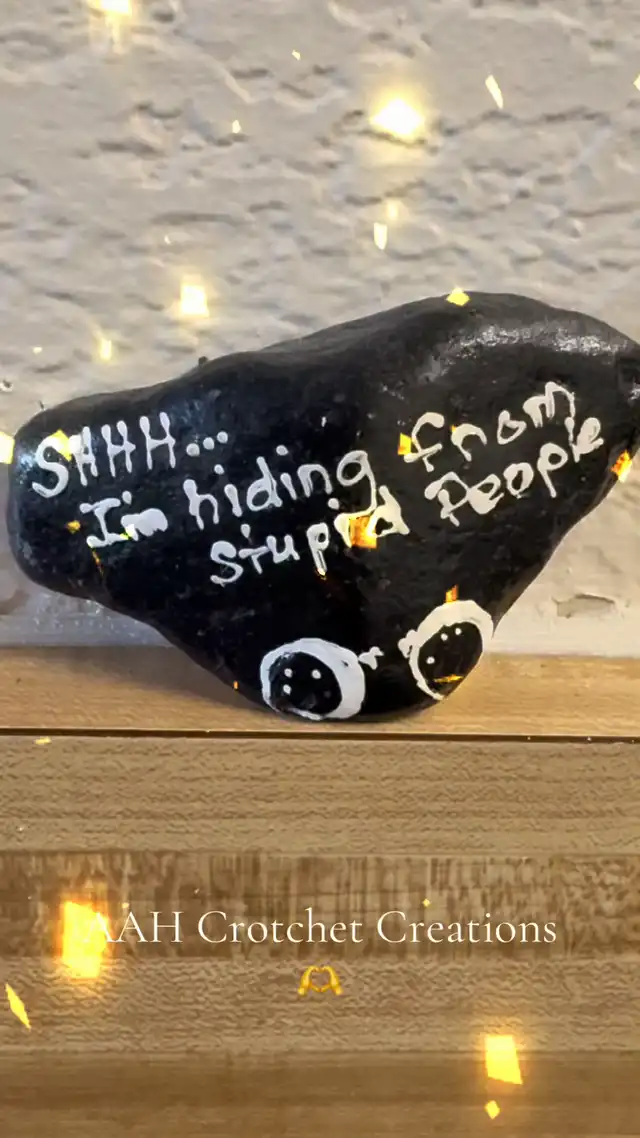 SHHH...
I'm hiding from
Stupid People
AAH Crotchet Creations
🫶